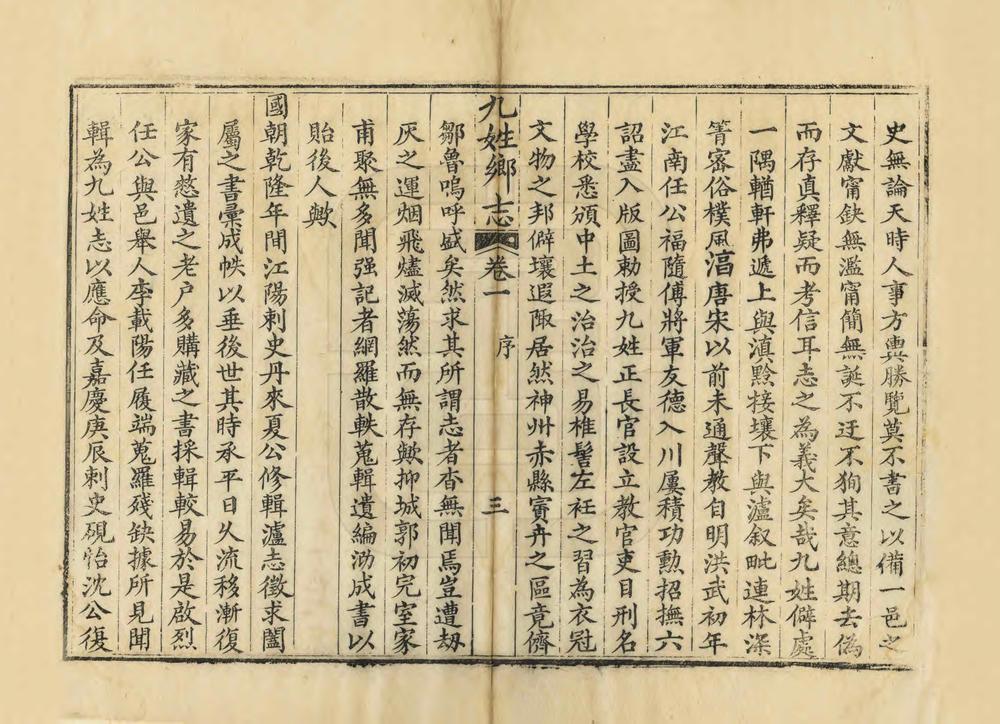 史無論天時人事方輿勝覽莫不書之以備一邑之
文獻甯缺無濫甯簡無誕不迂不狥其意總期去偽
而存真釋疑而考信耳志之為義大矣哉九姓僻處
一隅輶軒弗遞上與滇黔接壤下與瀘叙毗連林深
箐密俗樸風淳唐宋以前未通聲教自明洪武初年
江南任公福隨傅將軍友德入川屢積功勲招撫六
詔盡入版圖勅授九姓正長官設立教官吏目刑名
學校悉頒中土之治治之易椎髻左衽之習為衣冠
文物之邦僻壤遐陬居然神州赤縣寅卉之區竟儕
九姓鄉志 卷一 序 三
鄒魯嗚呼盛矣然求其所謂志者杳無聞焉豈遭刼
灰之運烟飛燼滅蕩然而無存歟抑城郭初完室家
甫聚無多聞强記者網羅散軼蒐輯遺編泐成書以
貽後人歟
國朝乾隆年間江陽刺史丹來夏公修輯瀘志徵求闔
屬之書彙成帙以垂後世其時承平日久流移漸復
家有憖遺之老户多購藏之書採輯較易於是啟烈
任公與邑舉人李載陽任履端蒐羅殘缺據所見聞
輯為九姓志以應命及嘉慶庚辰刺史硯怡沈公復